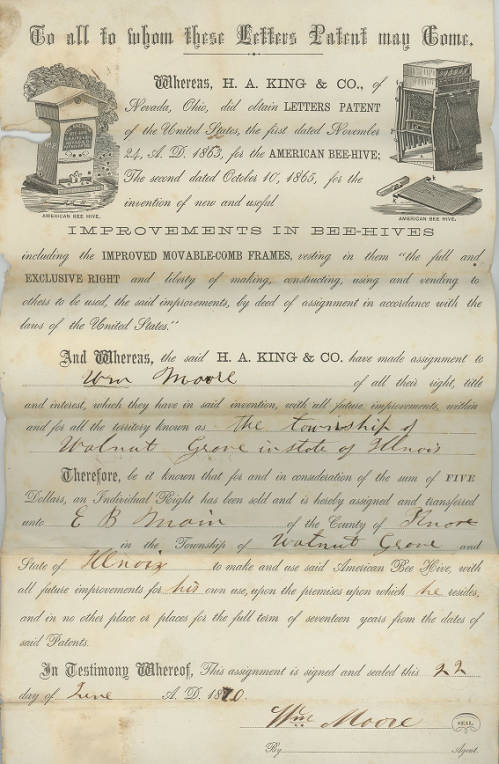 To all to whom these Letters Patent may Come.
Whereas, H. A. KING & CO., of
Nevada, Ohio, did obtain LETTERS PATENT
of the United States, the first dated November
24, A. D. 1863, for the AMERICAN BEE-HIVE:
The second dated October 10, 1865, for the
invention of new and useful
AMERICAN BEE HIVE.
AMERICAN BEE HIVE.
IMPROVEMENTS IN BEE-HIVES
including the IMPROVED MOVABLE-COMB FRAMES, vesting in them "the full and
EXCLUSIVE RIGHT and liberty of making, constructing, using and vending to
others to be used, the said improvements, by deed of assignment in accordance with the
laws of the United States."
And Whereas, the said H. A. KING & CO. have made assignment to
Wm Moore of all their right, title
and interest, which they have in said invention, with all future improvements, within
and for all the territory known as the township of
Walnut Grove in state of Illnois
Therefore, be it known that for and in consideration of the sum of FIVE
Dollars, an Individual Right has been sold and is hereby assigned and transferred
unto E B Main of the County of Knox
in the Township of Walnut Grove and
State of Illnoix to make and use said American Bee Hive, with
all future improvements for his own use, upon the premises upon which he resides,
and in no other place or places for the full term of seventeen years from the dates of
said Patents.
In Testimony Whereof, This assignment is signed and sealed this 22
day of June A. D. 1870.
Wm Moore SEAL.
By Agent.